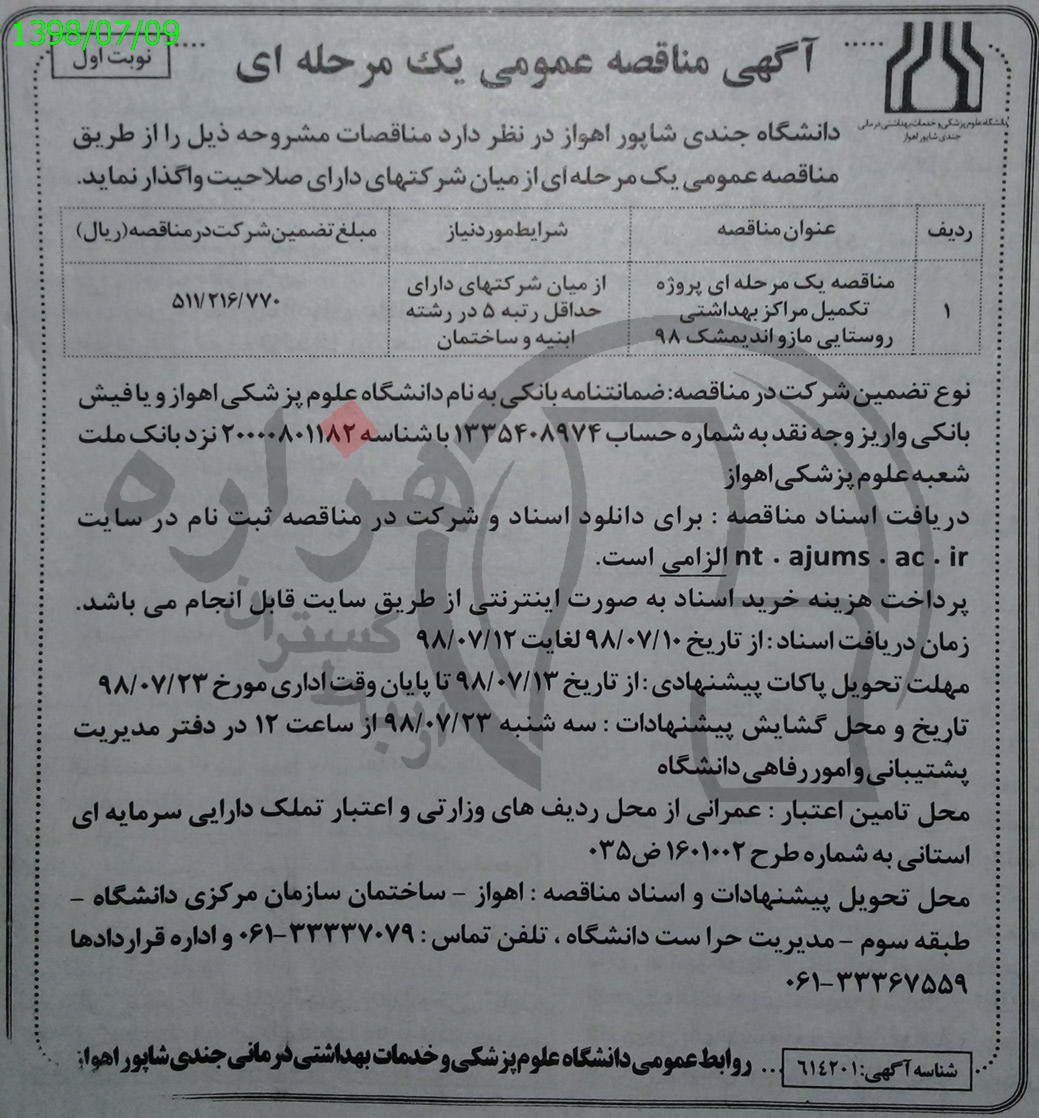 1398/07/09
نوبت اول
آگهی مناقصه عمومی یک مرحله ای
دانشگاه علوم پزشکی و خدمات بهداشتی درمانی
جندی شاپور اهواز
دانشگاه جندی شاپور اهواز در نظر دارد مناقصات مشروحه ذیل را از طریق
مناقصه عمومی یک مرحله ای از میان شرکتهای دارای صلاحیت واگذار نماید.
ردیف عنوان مناقصه شرایط مورد نیاز مبلغ تضمین شرکت در مناقصه (ریال)
مناقصه یک مرحله ای پروژه از میان شرکتهای دارای
۱ تکمیل مراکز بهداشتی حداقل رتبه ۵ در رشته ۵۱۱/۲۱۶/۷۷۰
روستایی مازو اندیمشک ۹۸ ابنیه و ساختمان
نوع تضمین شرکت در مناقصه: ضمانتنامه بانکی به نام دانشگاه علوم پزشکی اهواز و یا فیش
بانکی واریز وجه نقد به شماره حساب ۱۳۳۵۴۰۸۹۷۴ با شناسه ۲۰۰۰۰۸۰۱۱۸۲ نزد بانک ملت
شعبه علوم پزشکی اهواز
دریافت اسناد مناقصه : برای دانلود اسناد و شرکت در مناقصه ثبت نام در سایت
nt . ajums . ac . ir الزامی است.
پرداخت هزینه خرید اسناد به صورت اینترنتی از طریق سایت قابل انجام می باشد.
زمان دریافت اسناد : از تاریخ ۹۸/۰۷/۱۰ لغایت ۹۸/۰۷/۱۲
مهلت تحویل پاکات پیشنهادی : از تاریخ ۹۸/۰۷/۱۳ تا پایان وقت اداری مورخ ۹۸/۰۷/۲۳
تاریخ و محل گشایش پیشنهادات : سه شنبه ۹۸/۰۷/۲۳ از ساعت ۱۲ در دفتر مدیریت
پشتیبانی و امور رفاهی دانشگاه
محل تامین اعتبار : عمرانی از محل ردیف های وزارتی و اعتبار تملک دارایی سرمایه ای
استانی به شماره طرح ۱۶۰۱۰۰۲ض۰۳۵
محل تحویل پیشنهادات و اسناد مناقصه : اهواز - ساختمان سازمان مرکزی دانشگاه -
طبقه سوم - مدیریت حراست دانشگاه ، تلفن تماس : ۰۶۱-۳۳۳۳۷۰۷۹ و اداره قراردادها
۰۶۱-۳۳۳۶۷۵۵۹
شناسه آگهی: ۶۱۴۲۰۱
روابط عمومی دانشگاه علوم پزشکی و خدمات بهداشتی درمانی جندی شاپور اهواز
هزاره
گستران